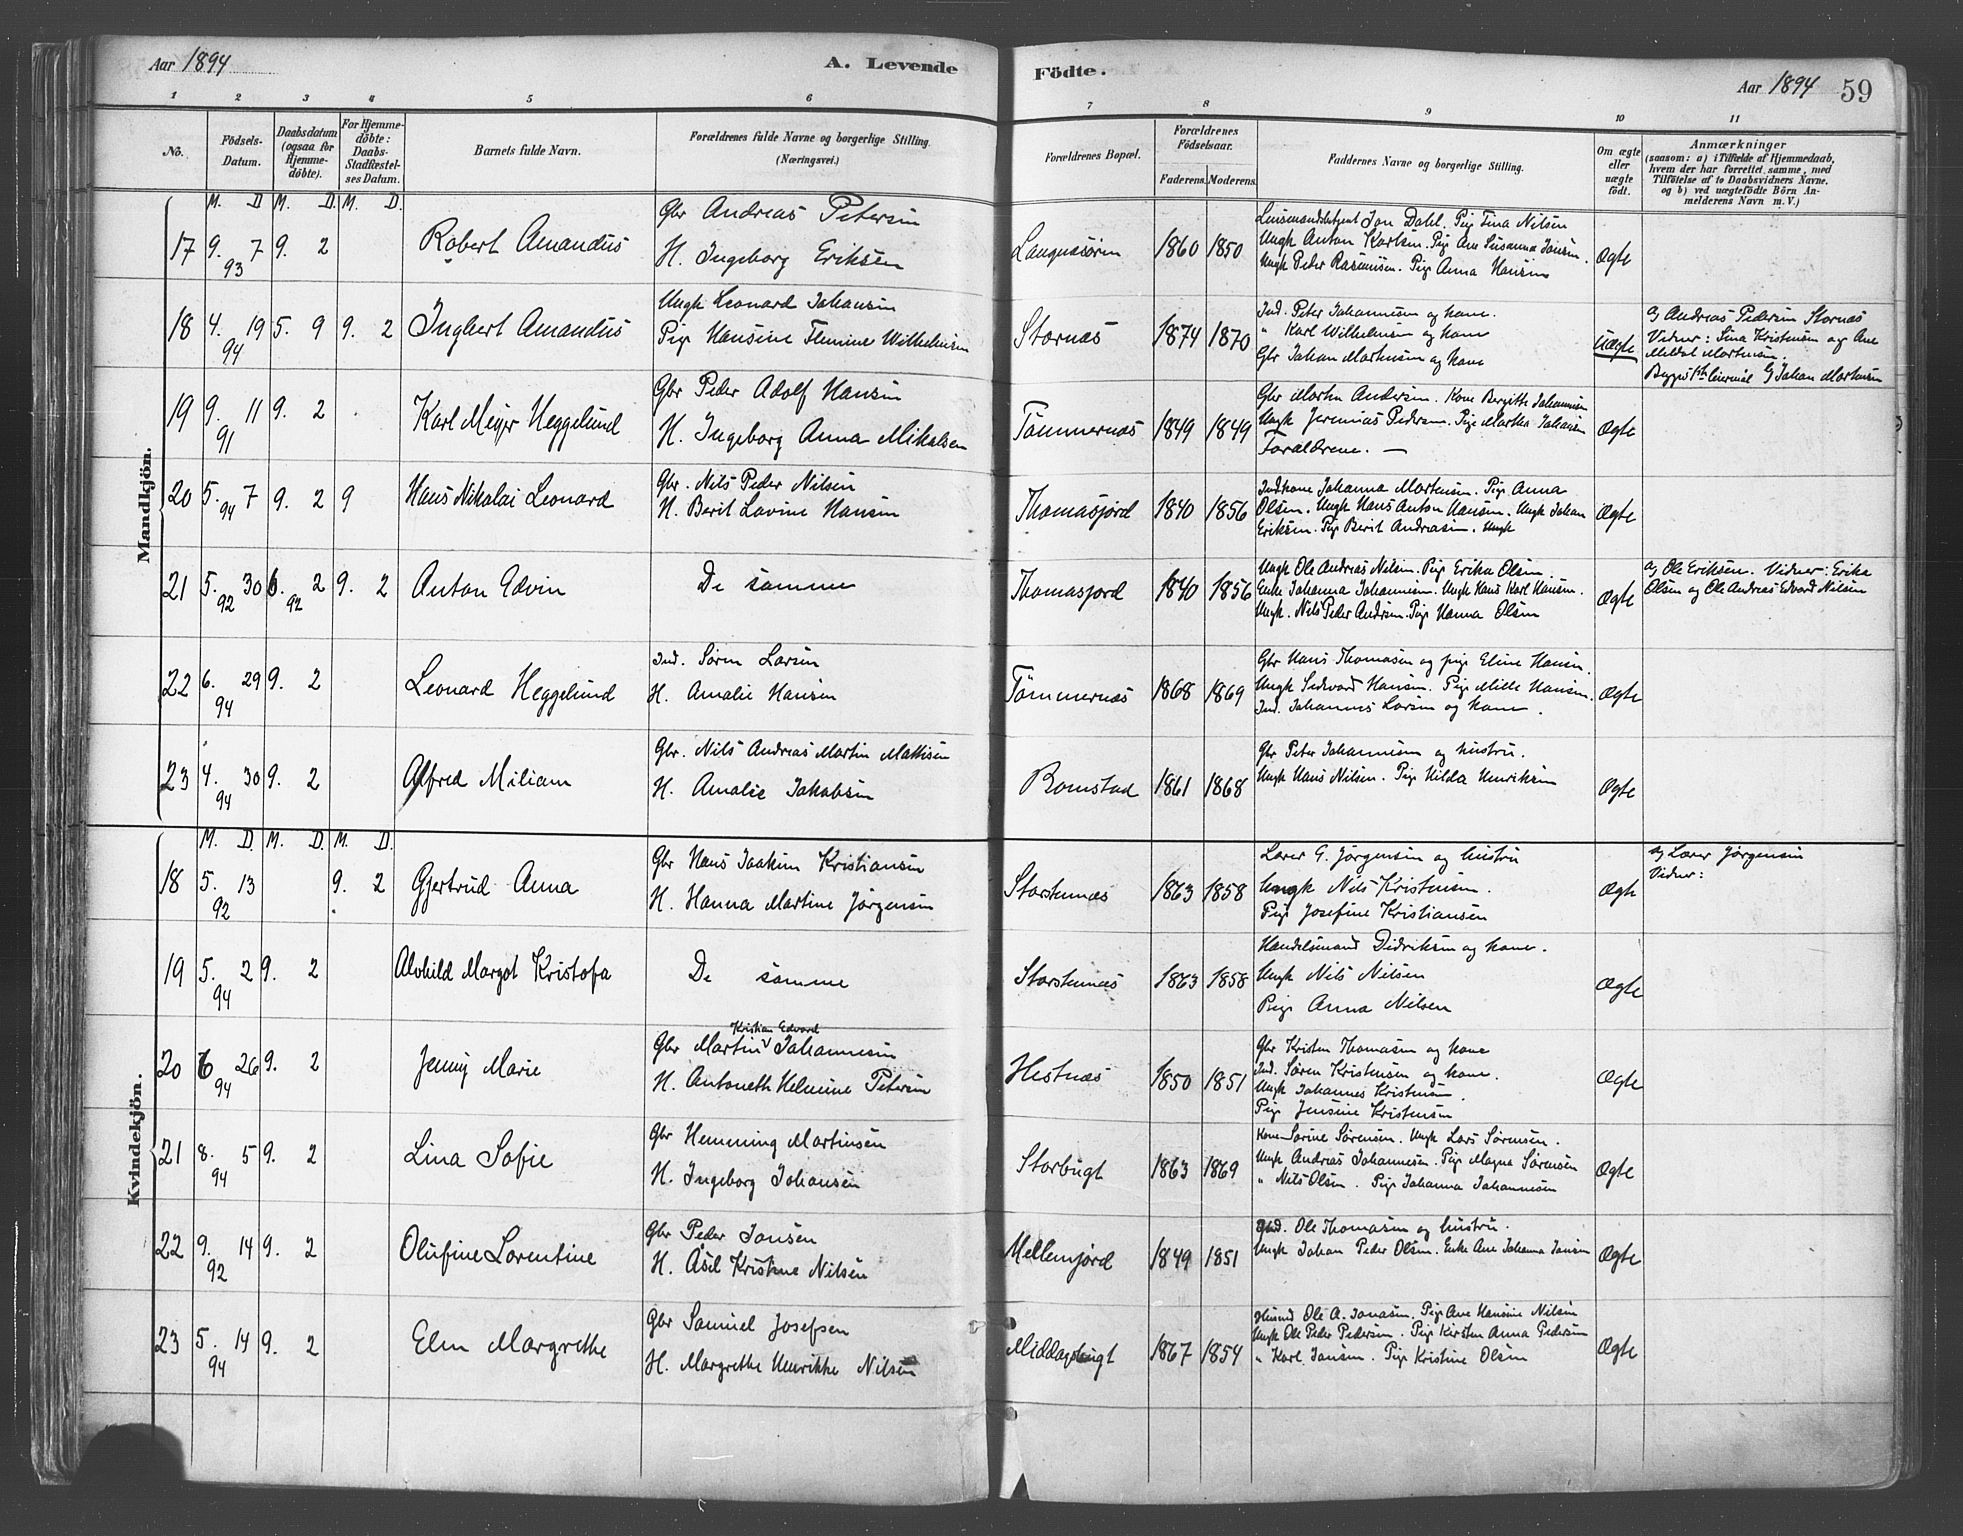 Aar 1894
A. Levende
Födte.
Aar 1894
59
1 2 3 4 5 6 7 8 9 10 11
No.
Födsels-Datum.
Daabsdatum (ogsaa for Hjemme-döbte).
For Hjemme-döbte: Daabs-Stadfæstel-ses Datum.
Barnets fulde Navn.
Forældrenes fulde Navne og borgerlige Stilling.
(Næringsvei.)
Forældrenes Bopæl.
Forældrenes Födselsaar.
Faderens. Moderens.
Faddernes Navne og borgerlige Stilling.
Om ægte eller uægte födt.
Anmærkninger
(saasom: a) i Tilfælde af Hjemmedaab,
hvem der har forrettet samme, med
Tilföielse af to Daabsvidners Navne,
og b) ved uægtefödte Börn An-
melderens Navn m. V.)
Mandkjön.
M. D. M. D. M. D.
17 9. 7 93 9. 2 Robert Amandus
Gbr Andreas Petersen
H. Ingeborg Eriksen
1860 1850
Lensmandsbetjent Jon Dahl. Pige Tina Nilsen
Ungk Anton Karlsen. Pige Ane Susanna Jonsen.
Ungk Peter Rasmussen. Pige Anna Hansen
Ægte
18 4. 19 94 5. 9 9. 2 Ingbert Amandus
Ungk Leonard Johansen
Pige Hansine Wilhelmsen
Stornæs 1874 1870
Ind. Peter Johannesen og kone.
" Karl Wilhelmsen og kone
Gbr Johan Mortensen og kone
Uægte
Andreas Pedersen Stornæs
Vidner: Sina Kristensen og Ane
Mortensen.
Johan Mortensen
19 9. 11 91 9. 2 Karl Meyer Heggelund
Gbr Peder Adolf Hansen
H. Ingeborg Anna Mikalsen
Tømmernæs 1849 1849
Gbr Martin Andersen. Kone Bergitte Johannesen
Ungk Jeremias Pedersen. Pige Martha Johansen
Forældrene. —
Ægte
20 5. 7 94 9. 2 9 Hans Nikolai Leonard
Gbr. Nils Peder Nilsen
H. Berit Lovine Hansen
Thomasjord 1840 1856
Indkone Johanna Mortensen. Pige Anna
Olsen. Ungk Hans Anton Hansen. Ungk Johan
Eriksen. Pige Berit Andreasen. Ungk
Ægte
21 5. 30 92 6. 2 92 9. 2 Anton Edvin
De samme
Thomasjord 1840 1856
Ungk Ole Andreas Nilsen. Pige Erika Olsen
Enke Johanna Johannesen. Ungk Hans Karl Hansen.
Ungk. Nils Peder Andersen. Pige Hanna Olsen
Ægte
Ole Eriksen. Vidner: Erika
Olsen og Ole Andreas Edvard Nilsen
22 6. 29 94 9. 2 Leonard Heggelund
Ind. Søren Larsen
H. Amalie Hansen
Tømmernæs 1868 1869
Gbr Hans Thomasen og pige Eline Hansen.
Ungk Sedevard Hansen. Pige Mille Hansen.
Ind. Johannes Larsen og kone.
Ægte
23 4. 30 94 9. 2 Alfred Miliam
Gbr. Nils Andreas Martin Mathisen
H. Amalie Jakobsen
Bomstad 1861 1868
Gbr Peter Johannesen og hustru.
Ungk Hans Nilsen. Pige Hilda Henriksen
Ægte
Kvindekjön.
M. D. M. D. M. D.
18 5. 13 92 9. 2 Gjertrud Anna
Gbr Hans Joakim Kristiansen
H. Hanna Martine Jørgensen
Storstennæs 1863 1858
Lærer G. Jørgensen og hustru
Ungk Nils Kristensen.
Pige Josefine Kristiansen
Ægte
Lærer Jørgensen
Vidner:
19 5. 2 94 9. 2 Alvhild Margot Kristofa
De samme
Storstennæs 1863 1858
Handelsmand Didriksen og kone.
Ungk Nils Nilsen
Pige Anna Nilsen
Ægte
20 6 26 94 9. 2 Jenny Marie
Kristian Edvard
Gbr Martin Johannesen
H. Antoneth Helmine Petersen
Hestnæs 1850 1851
Gbr Kristen Thomasen og kone
Ind. Søren Kristensen og kone.
Ungk Johannes Kristensen.
Pige Jensine Kristensen
Ægte
21 8. 5 94 9. 2 Lina Sofie
Gbr Hemming Martinsen
H. Ingeborg Johansen
Storbugt 1863 1869
Kone Sørine Sørensen. Ungk Lars Sørensen.
Ungk Andreas Johannesen. Pige Magna Sørensen
" Nils Olsen. Pige Johanna Johannesen
Ægte
22 9. 14 92 9. 2 Olufine Lorentine
Gbr Peder Jonsen
H. Asil Kristine Nilsen
Mellemjord 1849 1851
Ind. Ole Thomasen og hustru.
Ungk Johan Peder Olsen. Enke Ane Johanna Jonsen
Ægte
23 5. 14 94 9. 2 Elen Margrethe
Gbr Samuel Josefsen
H. Margrethe Henrikke Nilsen
Middagsbugt 1867 1854
Ole A. Jonasen. Pige Ane Hansine Nilsen
Ungk Ole Peder Pedersen. Pige Kirsten Anna Pedersen
" Karl Jonsen. Pige Kristine Olsen
Ægte